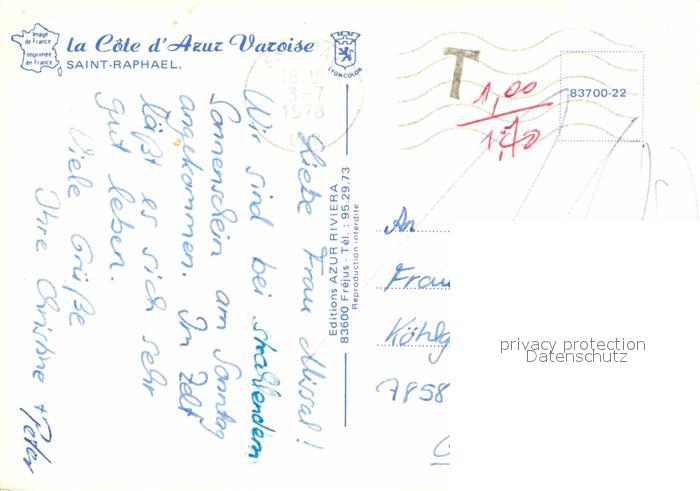 Image
de France
Imprimée
en France
la Côte d'Azur Varoise
SAINT-RAPHAEL.
LYONCOLOR
18 H
3-7
1978
T
1,00
83700-22
Liebe Frau Missal!
Wir sind bei strahlendem
Sonnenschein am Sonntag
angekommen. Im Zelt
läßt es sich sehr
gut leben.
Viele Grüße
Ihre Christine + Peter
Editions AZUR RIVIERA
83600 Fréjus - Tél. : 95.29.73
Reproduction interdite
An
Frau
Köhlg
7858
privacy protection
Datenschutz